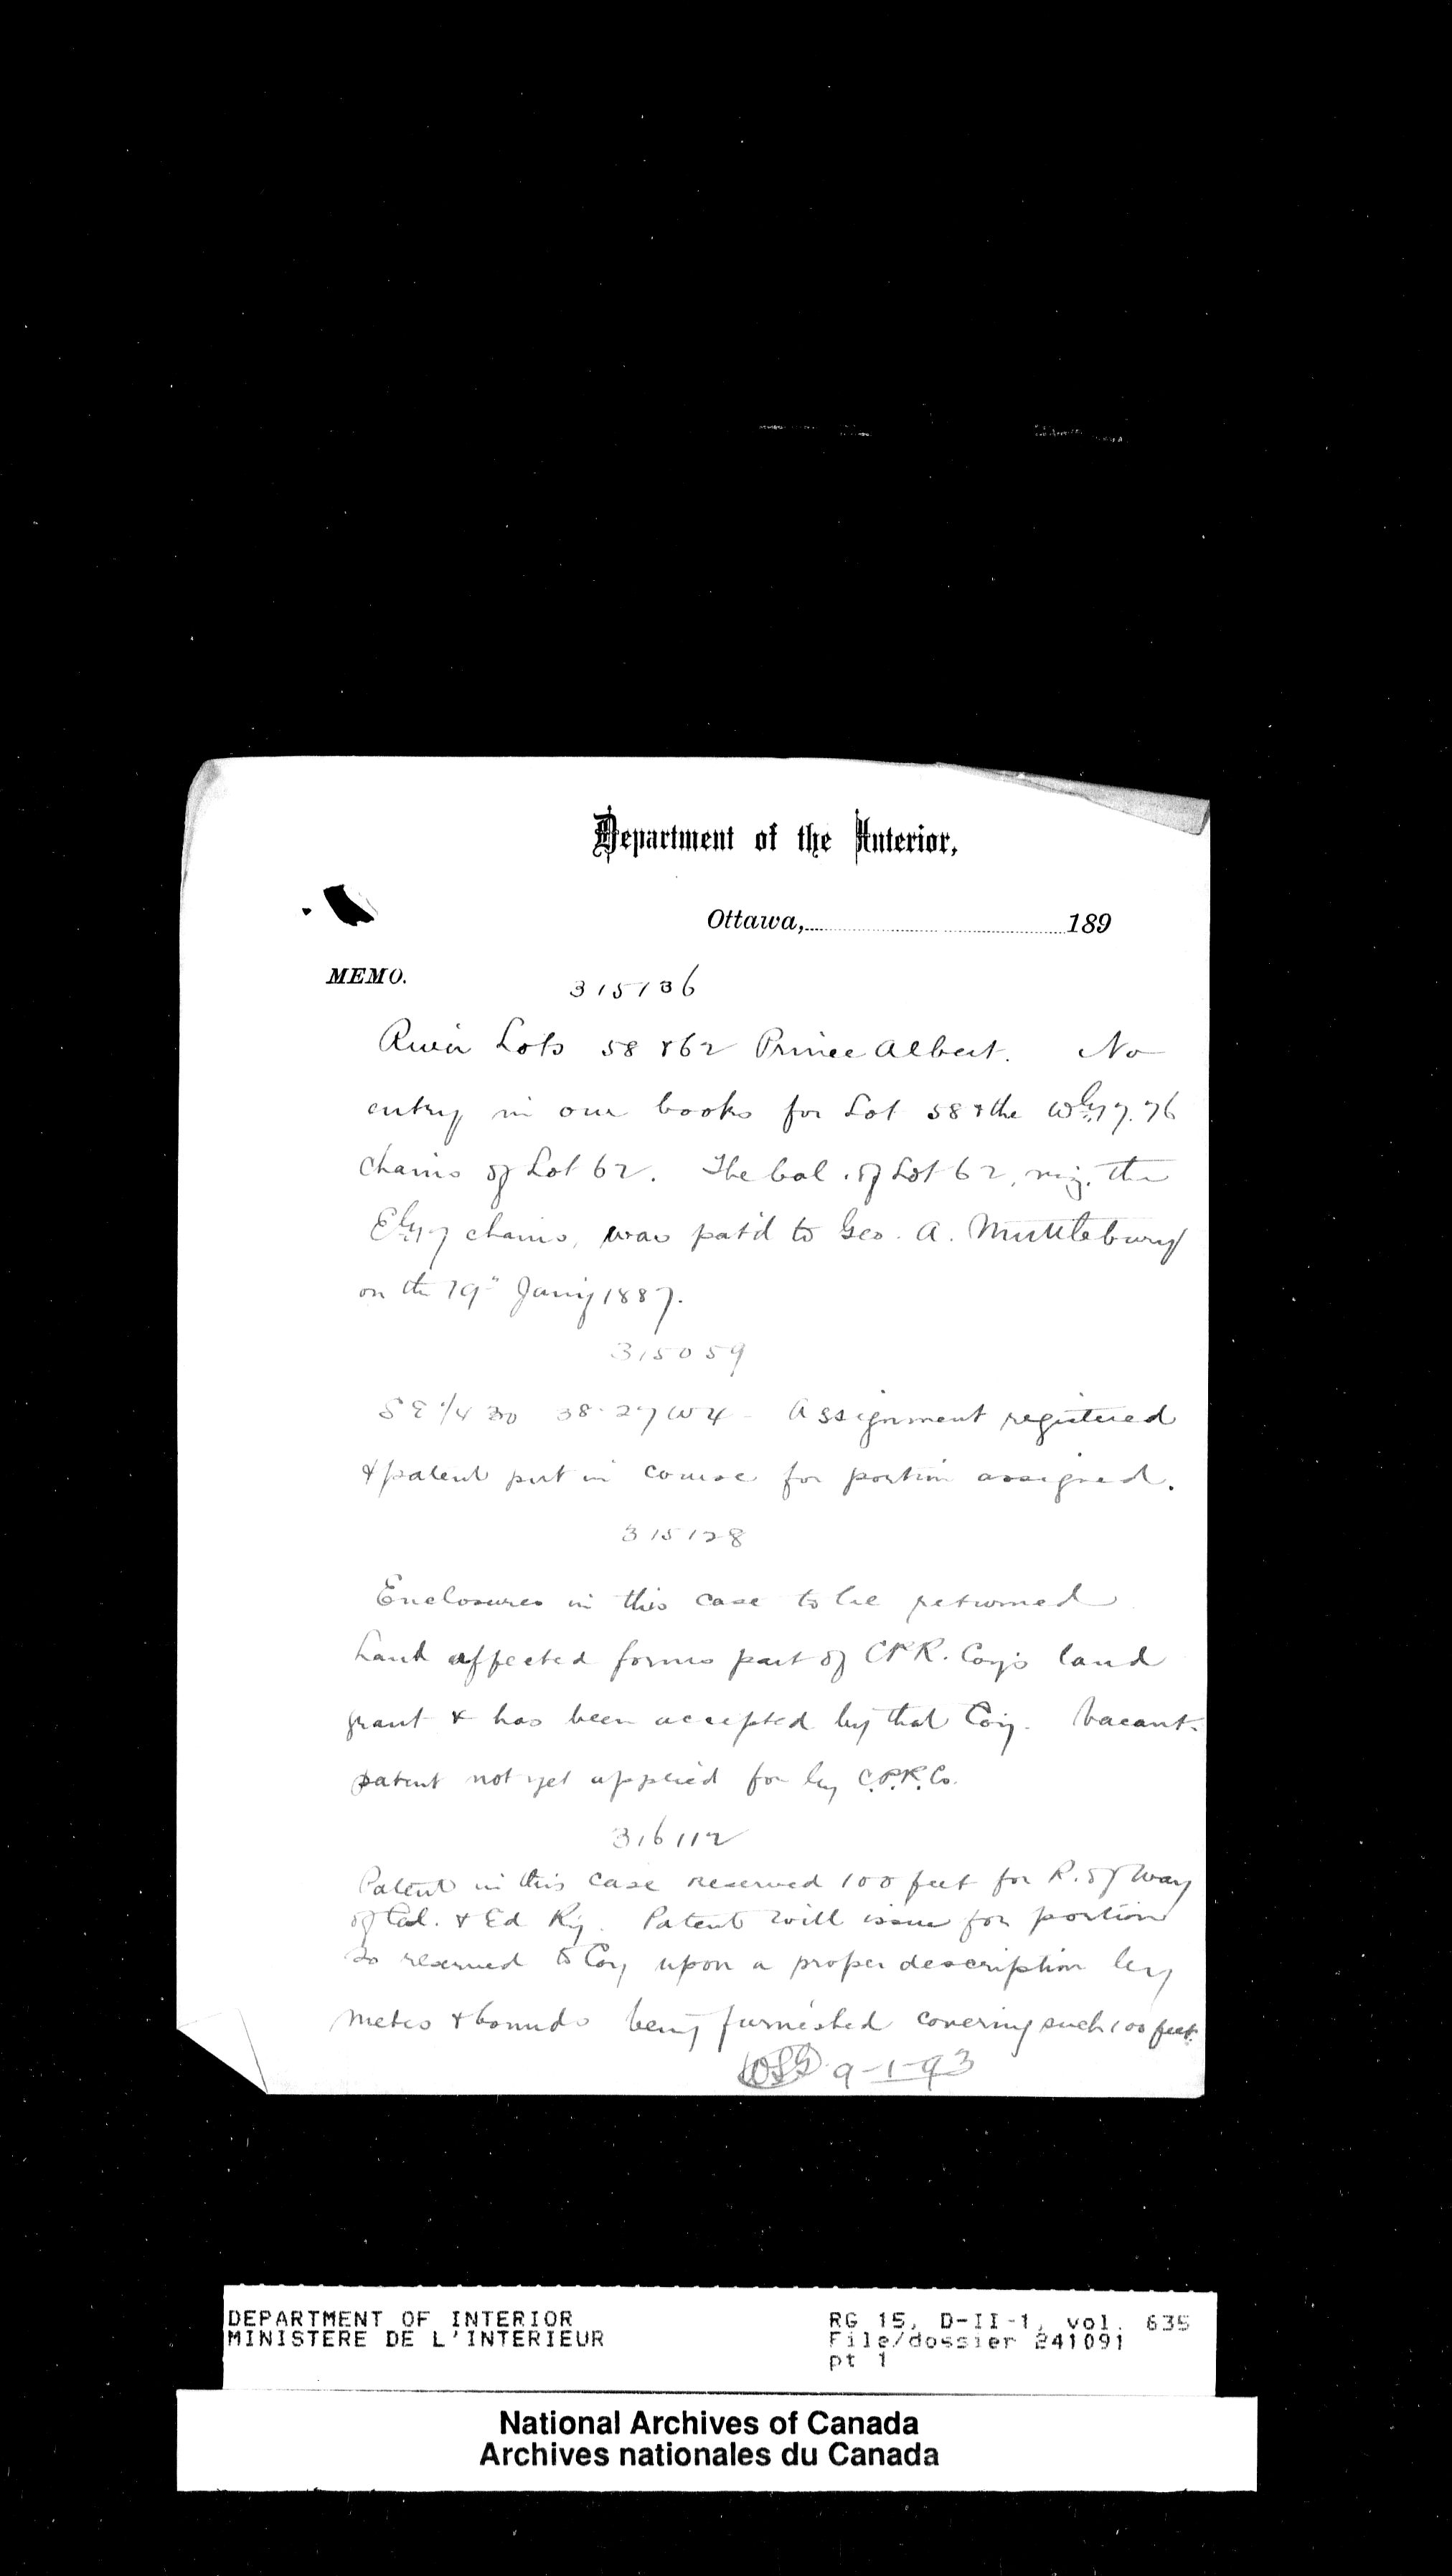 Department of the Interior,
Ottawa, 189
MEMO.
315136
River Lots 58 & 62 Prince Albert. No
entry in our books for Lot 58 & the Wly 7.76
chains of Lot 62. The bal. of Lot 62, viz. the
Ely 7 chains, was pat'd to Geo. A. Muttlebury
on the 19" Jan'y 1887.
315059
SE 1/4 30 38-27 W4 - Assignment registered
& patent put in course for portion assigned.
315128
Enclosures in this case to be returned
Land affected forms part of CPR. Coy's land
grant & has been accepted by that Coy. Vacant.
patent not yet applied for by C.P.R. Co.
316112
Patent in this case reserved 100 feet for R. of Way
of Cal. & Ed Ry. Patent will issue for portion
so reserved to Coy upon a proper description by
metes & bounds being furnished covering such 100 feet.
9-1-93
DEPARTMENT OF INTERIOR
MINISTERE DE L'INTERIEUR
RG 15, D-II-1, vol. 635
File/dossier 241091
pt 1
National Archives of Canada
Archives nationales du Canada